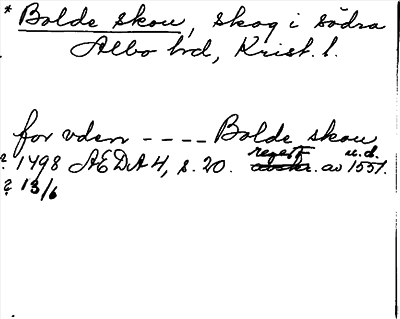 * Bolde skou, skog i södra
Albo hrd, Krist. l.
for vden - - - - Bolde skou
? 1498 ÆDA 4, s. 20. regest u.d.
avskr. av 1551.
? 13/6